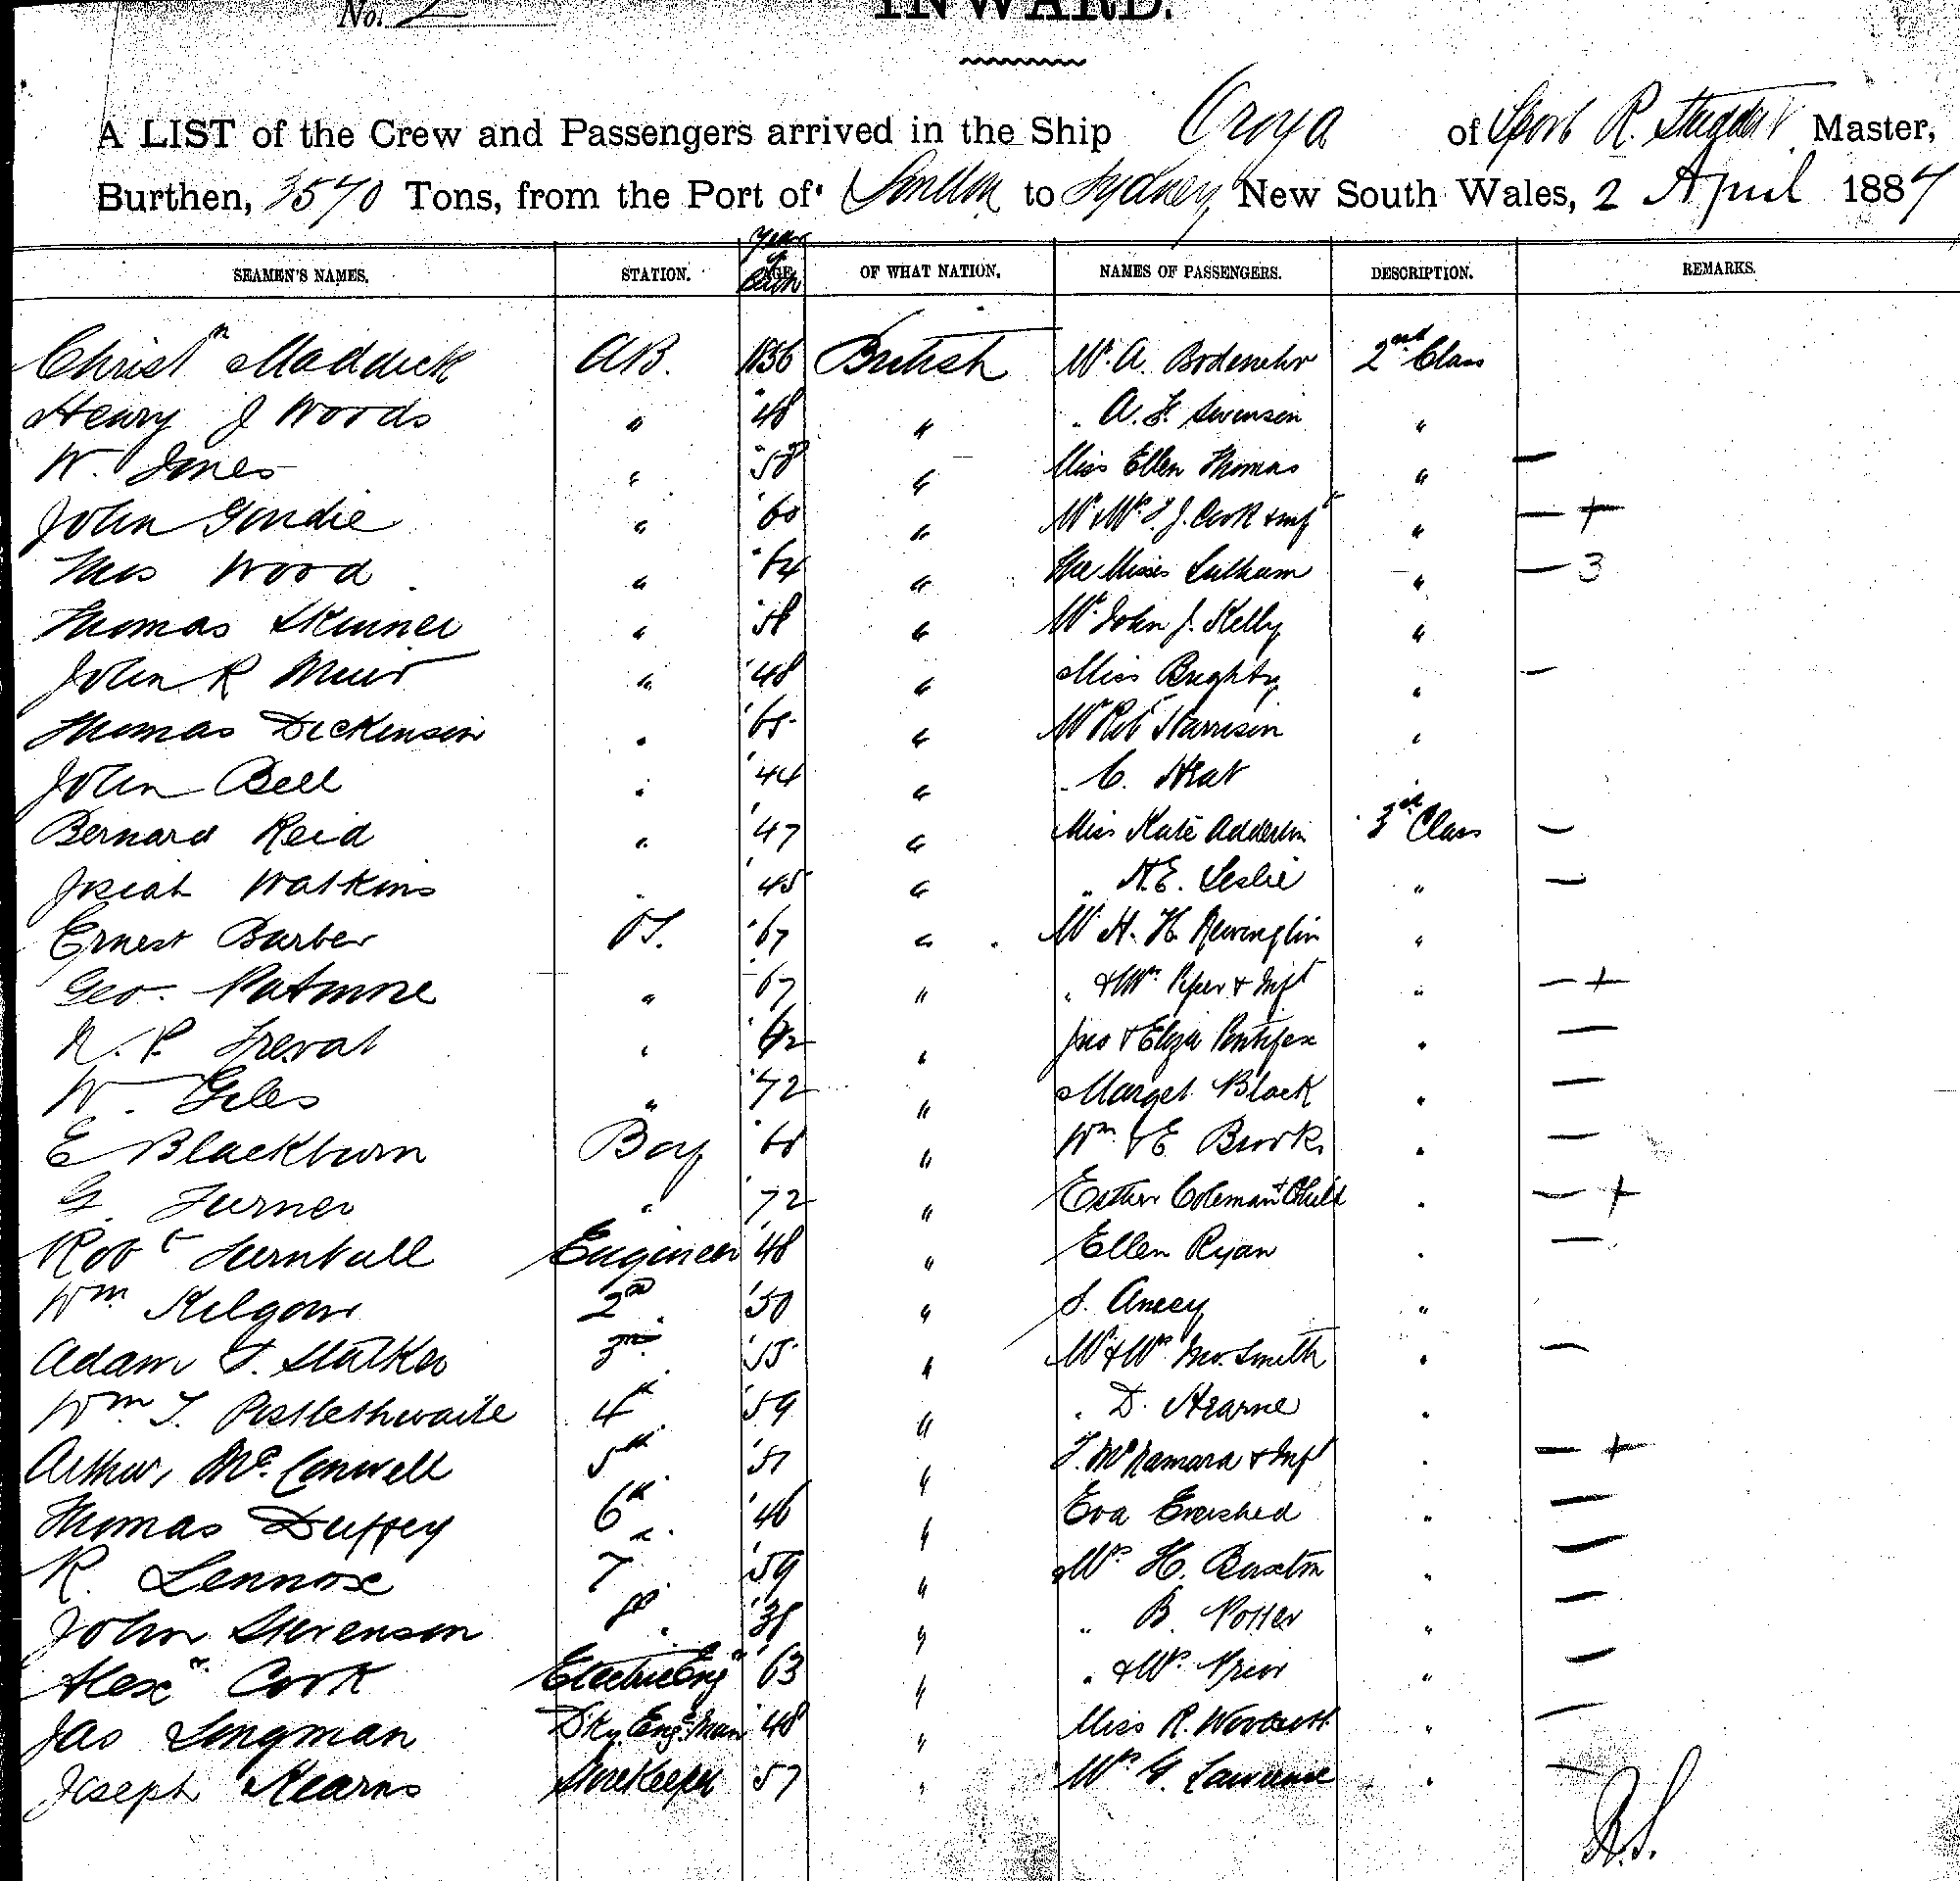 No. 2 INWARD.
A LIST of the Crew and Passengers arrived in the Ship Oroya of R. Studdert Master,
Burthen, 3570 Tons, from the Port of London to Sydney New South Wales, 2 April 1887
Year of Birth
SEAMEN'S NAMES. STATION. AGE. OF WHAT NATION. NAMES OF PASSENGERS. DESCRIPTION. REMARKS.
Christn Maddick AB. 1836 British Mr. A. 2nd Class
Henry J Woods " '48 " " A. F. Swensen "
W. Jones " '58 " Miss Ellen Thomas " —
John Goudie " '60 " Mr & Mrs J. Cook & inft " — +
Thos Wood " '64 " The Misses Latham " — 3
Thomas Skinner " '58 " Mr. John J. Kelly "
John R Muir " '48 " Miss Brighty " —
Thomas Dickenson " '65 " Mr Robt Harrison "
John Bell " '44 " " C. Heat "
Bernard Reid " '47 " Miss Kate Adderlin 3rd Class —
Josiah Watkins " '45 " " H.E. Leslie " —
Ernest Barber OS. '67 " Mr H. H. Newinglin "
Geo. Patmore " '67 " " & Mrs. Piper & Inft " — +
N. P. Treval " " Jno & Eliza Pontifex " —
W. Giles " '72 " Margt. Black " —
E Blackburn Boy '68 " Wm & E Brooks " —
G. Turner " '72 " Esther Coleman & Child " — +
Robt Turnbull Engineer '48 " Ellen Ryan " —
Wm Kilgour 2nd '50 " S. Ancey "
Adam T. Stalker 3rd '55 " Mr & Mrs. Jno. Smith " —
Wm T. Postlethwaite 4th '59 " " D. Hearne "
Arthur Mc.Conwell 5th '51 " T. McNamara & Inft " — +
Thomas Duffey 6th '46 " Eva Evershed " —
R. Lennox 7 '59 " Mrs H. Buxton " —
John Stevenson 8th '38 " " B. Potter " —
Alexr. Cook Electric Engr '63 " " & Mrs. Prior " —
Jas Longman Dky. Enge. Man '48 " Miss R. " —
Joseph Kearns Storekeeper '57 " Mrs G. Lawrence " —
R.S.